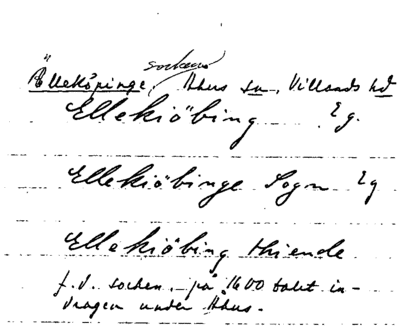 socken
Älleköpinge, Åhus sn, Villands hd
Ellekiöbing Eg.
Ellekiöbinge Sogn Eg
Ellekiöbing thiende
f.d. socken. på 1600 talet in-
dragen under Åhus.